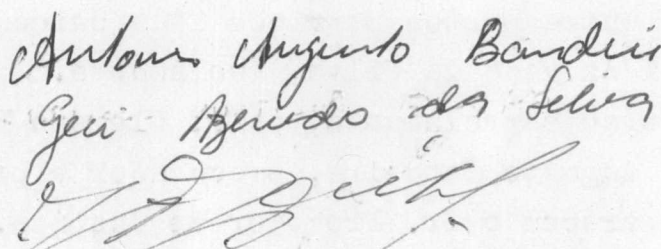 Antonio Augusto Bandeir
Geci Azevedo da Silva